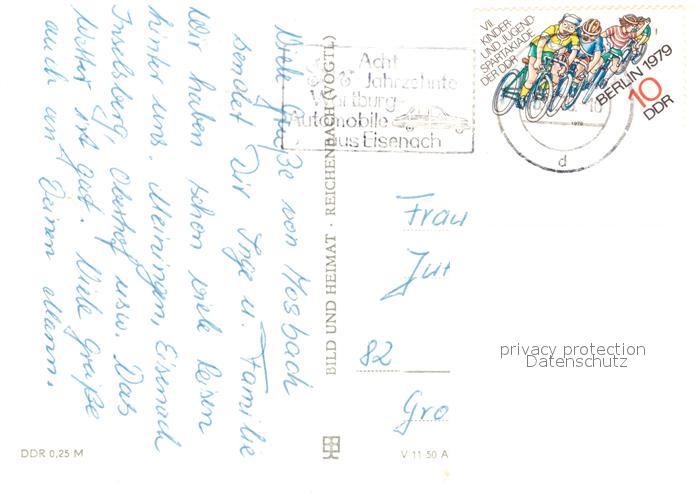 Viele Grüße von Mosbach
sendet Dir Inge u. Familie
Wir haben schon viele Reisen
hinter uns. Meiningen, Eisenach
Inselsberg, Oberhof usw. Das
Wetter ist gut. Viele Grüße
auch an Deinen Mann.
DDR 0,25 M
BILD UND HEIMAT · REICHENBACH (VOGTL)
V 11 50 A
Acht
Jahrzehnte
Wartburg-
Automobile
aus Eisenach
VII.
KINDER-
UND JUGEND
SPARTAKIADE
DER DDR
BERLIN 1979
10
DDR
d
Frau
82
Gro
privacy protection
Datenschutz